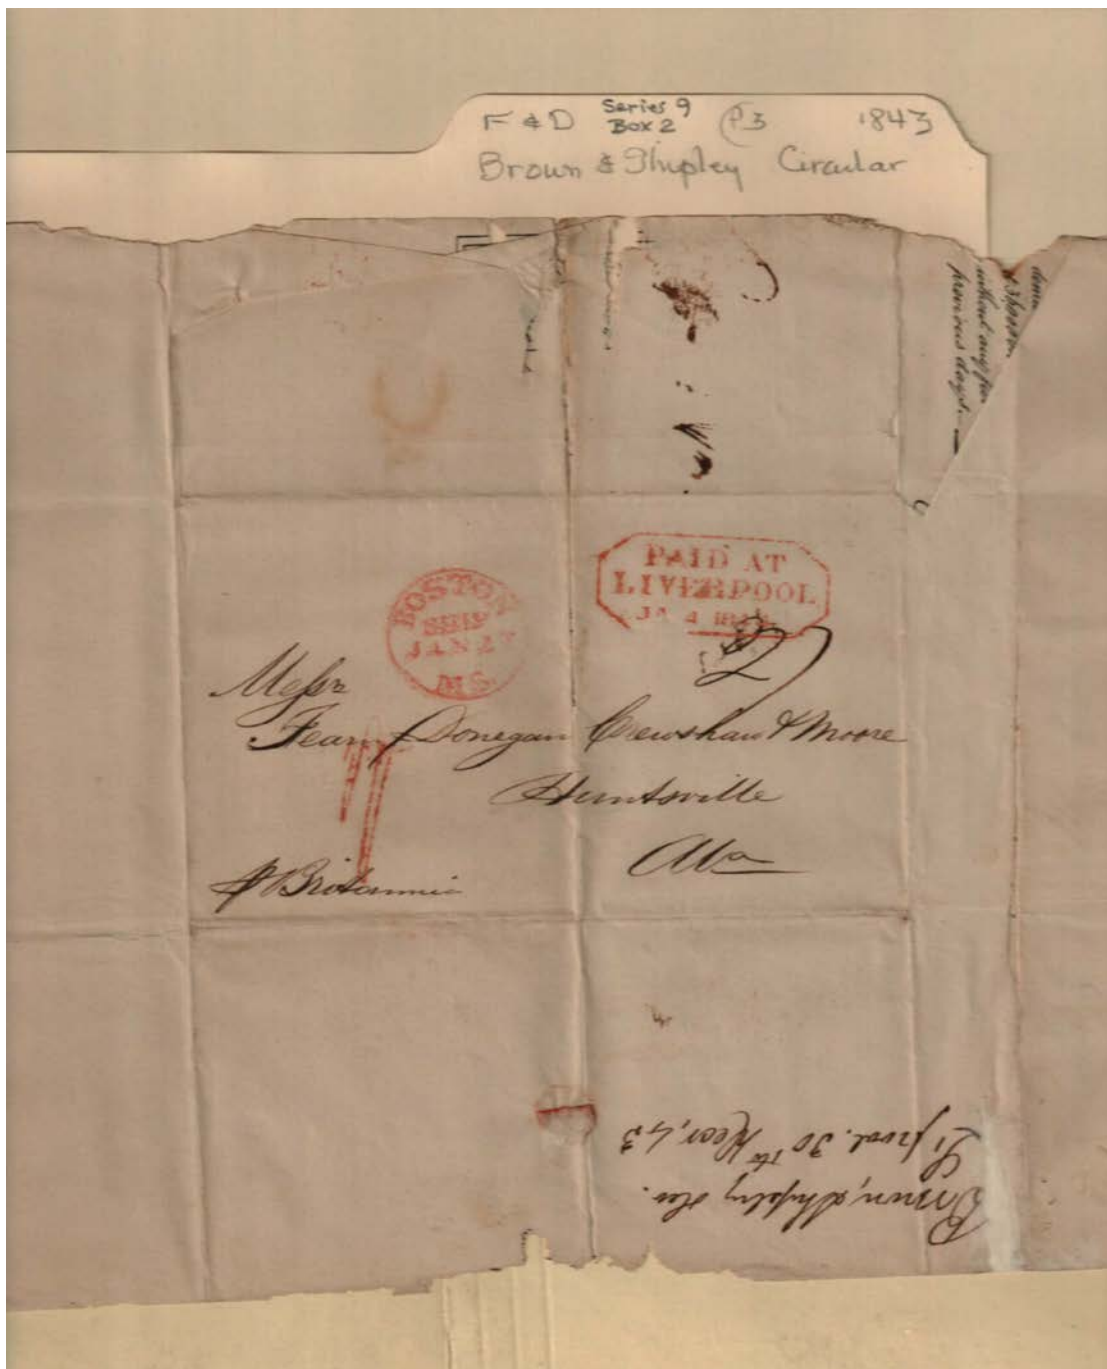 F & D Series 9 Box 2 P3 1843
Brown & Shipley Circular
without any
previous days.
PAID AT
LIVERPOOL
JA 4
BOSTON
SHIP
JAN 27
MS.
Messr
Fearn Donegan Crewshaw & Moore
Huntsville
Ala
p Britannia
Brown, Shipley &co.
Lipool. 30th Decr, 43